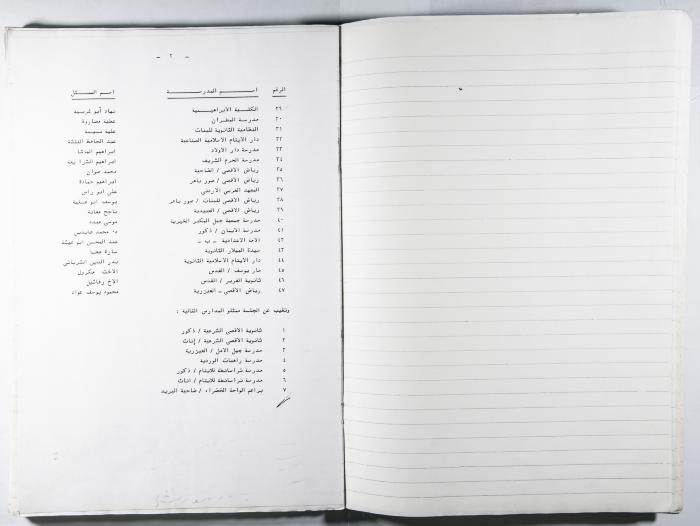 - ٢ -
الرقم اسم المدرسة اسم الممثل
٢٩ الكلية الابراهيمية نهاد أبو غربيه
٣٠ مدرسة المطران عطية مصاروة
٣١ النظامية الثانوية للبنات علية نسيبه
٣٢ دار الايتام الاسلامية الصناعية عبد الحافظ النتشة
٣٣ مدرسة دار الاولاد ابراهيم الباشا
٣٤ مدرسة الحرم الشريف ابراهيم الشرايعه
٣٥ رياض الاقصى / الضاحية محمد صوان
٣٦ رياض الاقصى / صور باهر ابراهيم حمادة
٣٧ المعهد العربي الاردني علي ابو راس
٣٨ رياض الاقصى للبنات / صور باهر يوسف ابو
٣٩ رياض الاقصى / العبيدية ناجح
٤٠ مدرسة جمعية جبل المكبر الخيرية موسى عبده
٤١ مدرسة الايمان / ذكور د. محمد
٤٢ الأمة الاعدادية - ب - عبد المحسن ابو عيشة
٤٣ سيدة البيلار الثانوية سارة
٤٤ دار الايتام الاسلامية الثانوية بدر الدين الشرباتي
٤٥ مار يوسف / القدس الاخت
٤٦ ثانوية الفرير / القدس الاخ رفائيل
٤٧ رياض الاقصى - العيزرية محمود يوسف عواد
وتغيب عن الجلسة ممثلو المدارس التالية :
١ ثانوية الاقصى الشرعية / ذكور
٢ ثانوية الاقصى الشرعية / إناث
٣ مدرسة جيل الامل / العيزرية
٤ مدرسة راهبات الوردية
٥ مدرسة للايتام / ذكور
٦ مدرسة للايتام / اناث
٧ براعم الواحة الخضراء / ضاحية البريد